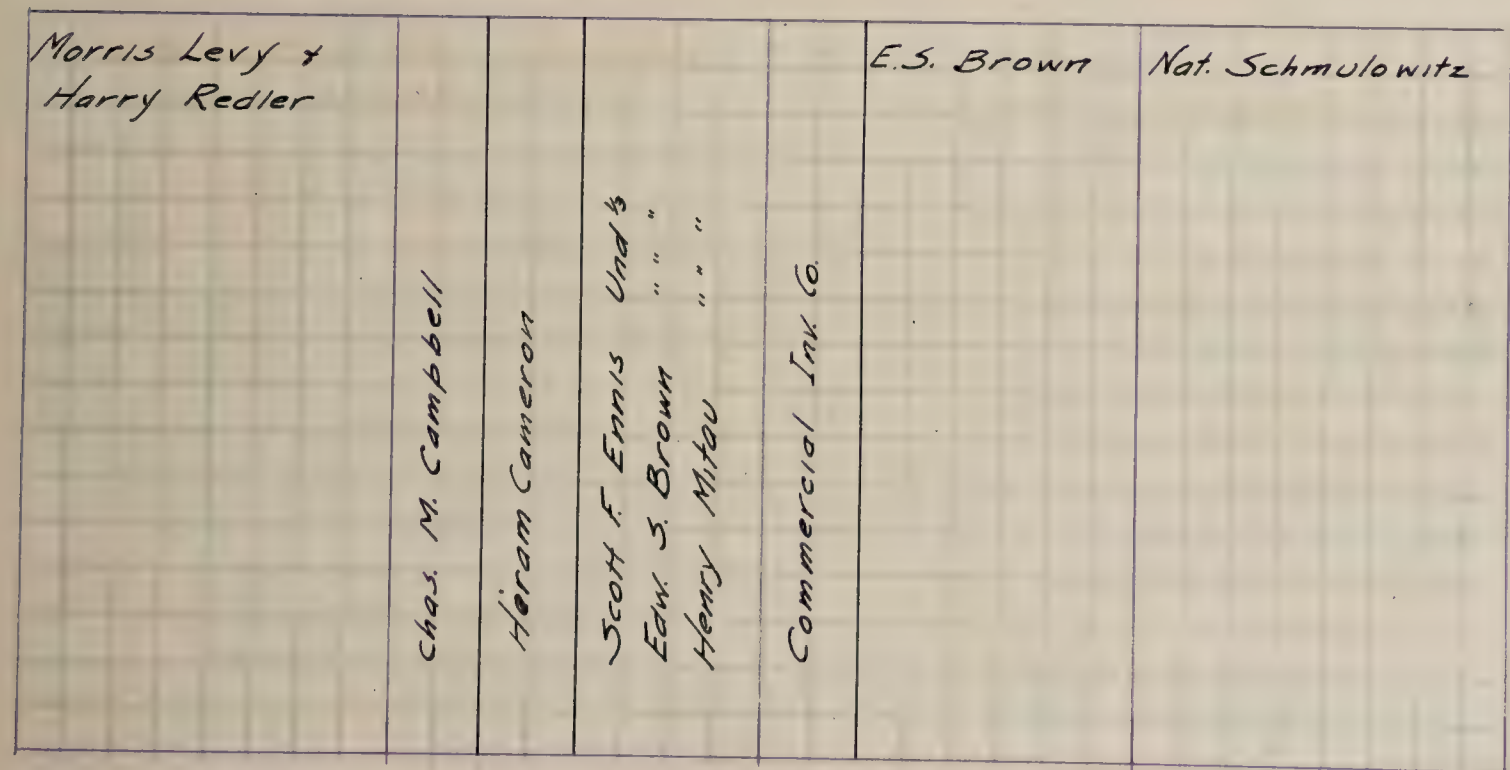 Morris Levy &
Harry Redler
Chas. M. Campbell
Hiram Cameron
Scott F. Ennis Und 1/3
Edw. S. Brown " " "
Henry Mitau " " "
Commercial Inv. Co.
E.S. Brown
Nat. Schmulowitz